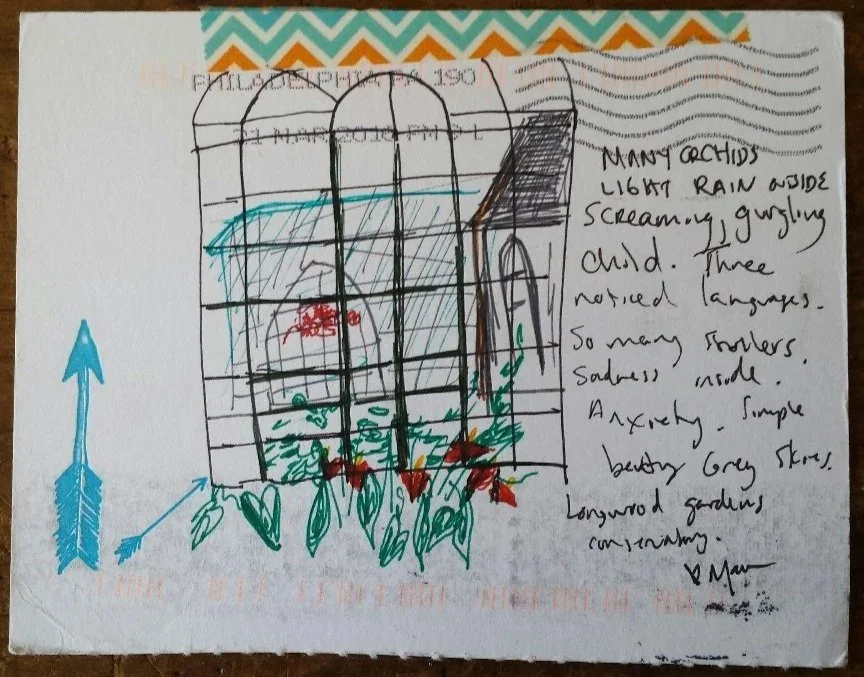 PHILADELPHIA PA 190
MANY ORCHIDS
LIGHT RAIN INSIDE
Screaming, gurgling
child. Three
noticed languages.
So many strollers.
Sadness inside.
Anxiety. Simple
beauty Grey Skies.
Longwood gardens
conservatory.